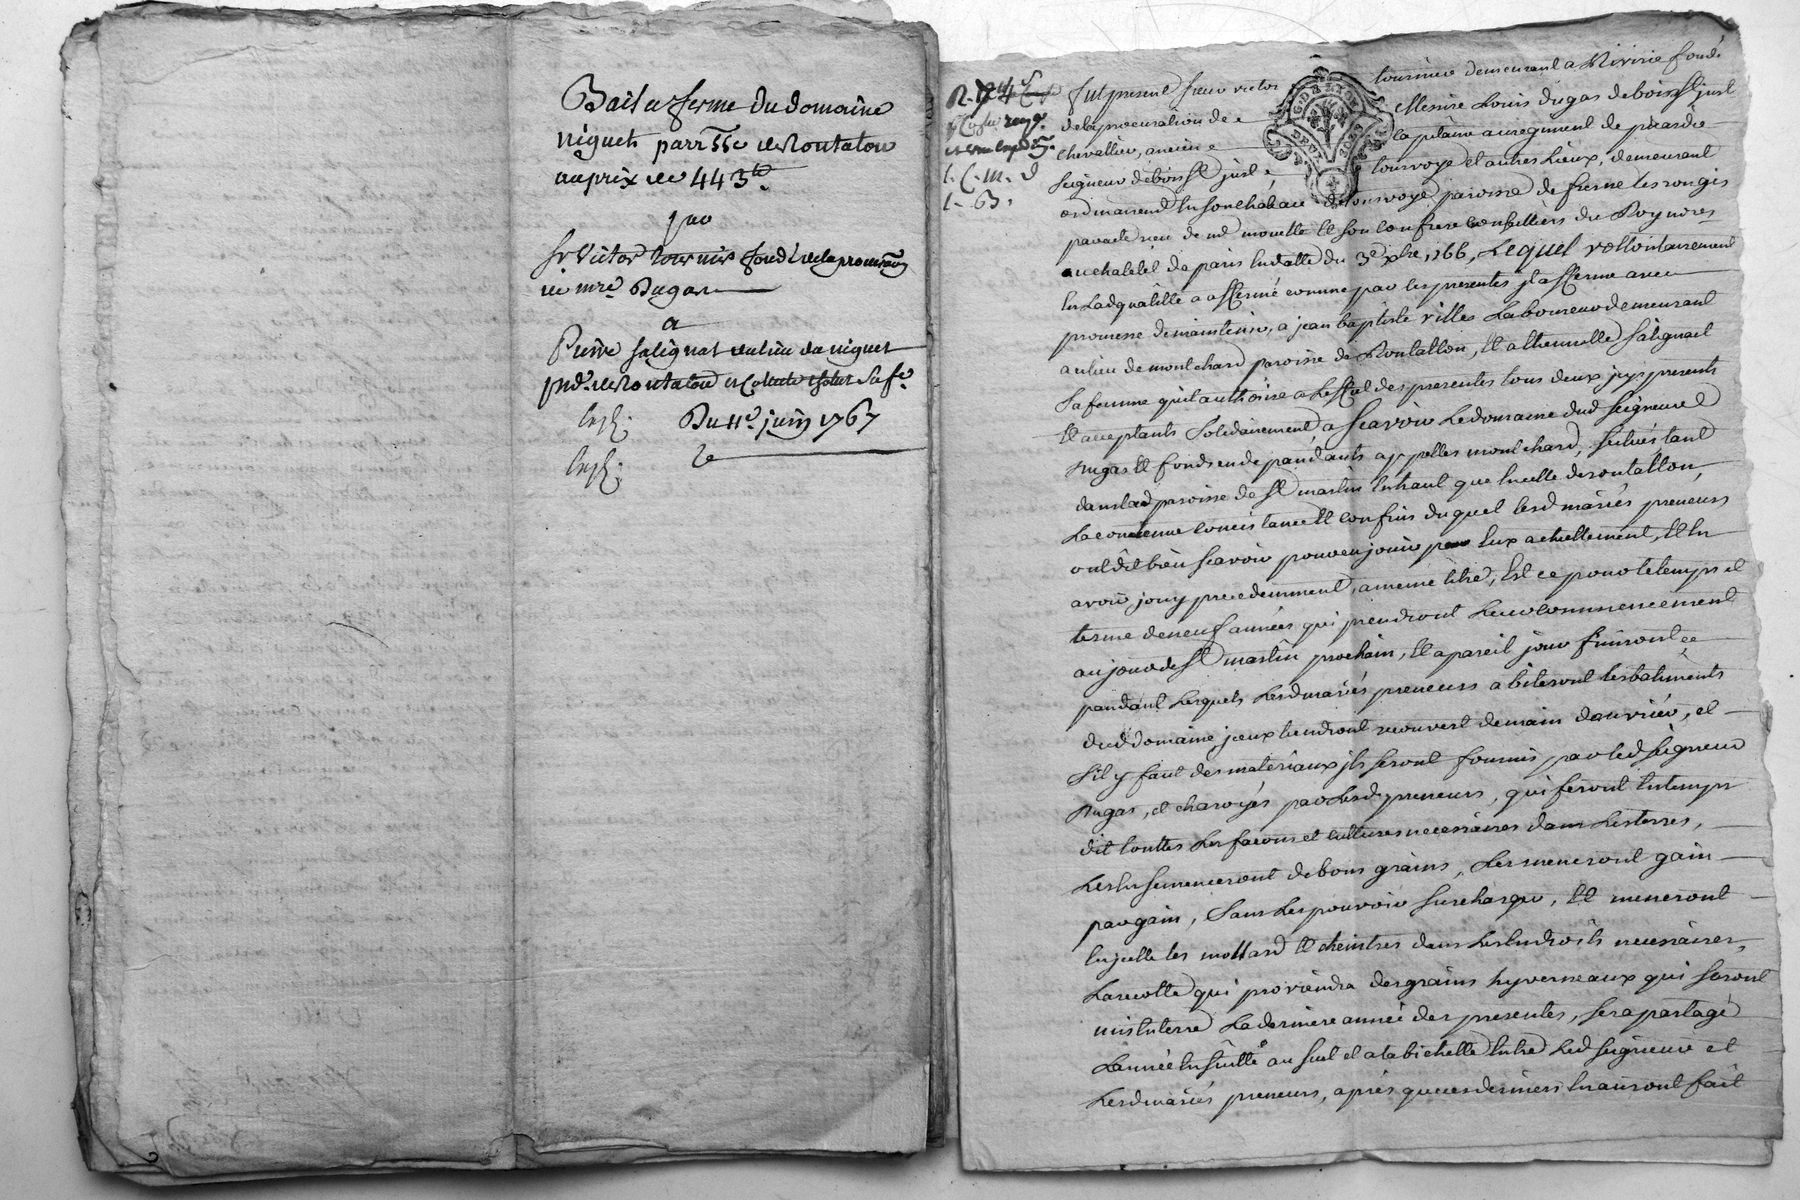 Bail a ferme du domaine
niguet parr^sse de Rontalon
au prix de 443^tt
par
S^r Victor tournier fondé de la procur^on
de m^re Dugas
a
Pierre salignat du lieu du niguet
du 11^e juin 1767
R.
1. 63.
fut present sieur victor tournier demeurant a Riverie fondé
de la procuration de Messire Louis dugas de bois S^t just
chevallier, ancien capitaine au regiment de picardie
seigneur de bois S^t just, tourvoye et autres Lieux, demeurant
ordinairem^t en son chateau de tourvoye paroisse de fresne les rongis
au chatelet de paris en datte du 3^e x^bre 1766, Lequel vollontairement
en lad qualitté a affermé comme par les presentes jl afferme avec
promesse de maintenir, a jean baptiste villes Laboureur demeurant
au lieu de montchard paroisse de Rontallon, Et a thennette salignait
sa femme qu'il authorise a L'effet des presentes tous deux jcy presents
Et acceptants solidairement a scavoir Le domaine dud seigneur
dugas Et fonds en depandants appellés montchard, scitués tant
dans lad paroisse de S^t martin En haut que En celle de rontallon,
La contenue concistance Et confins duquel lesd mariés preneurs
ont dit bien scavoir pour en jouir par Eux actuellement, Et En
avoir jouy precedemment a meme titre, Et ce pour le temps et
terme de neuf années qui prendront Leur commencement
au jour de S^t martin prochain, Et a pareil jour finiront
pandant Lesquels Lesd mariés preneurs abiteront les batiments
dud domaine, jceux tiendront recouvert de main d'ouvrier, et
s'il y faut des materiaux jls seront fournis par led seigneur
dugas, et charoyés par Lesd preneurs, qui feront En temps
dit touttes Les facons et cultures necessaires dans Les terres,
Les Ensemenceront de bons grains, Les meneront gain
par gain, sans Les pouvoir surcharger, Et meneront
les mottard Et cheintres dans Les Endroits necessaires,
La recolte qui proviendra des grains hyverneaux qui seront
mis En terre La derniere année des presentes, sera partagé
L'année En suitte au suel et a la bichette Entre Led seigneur et
Lesd mariés preneurs, aprés que ces derniers En auront fait